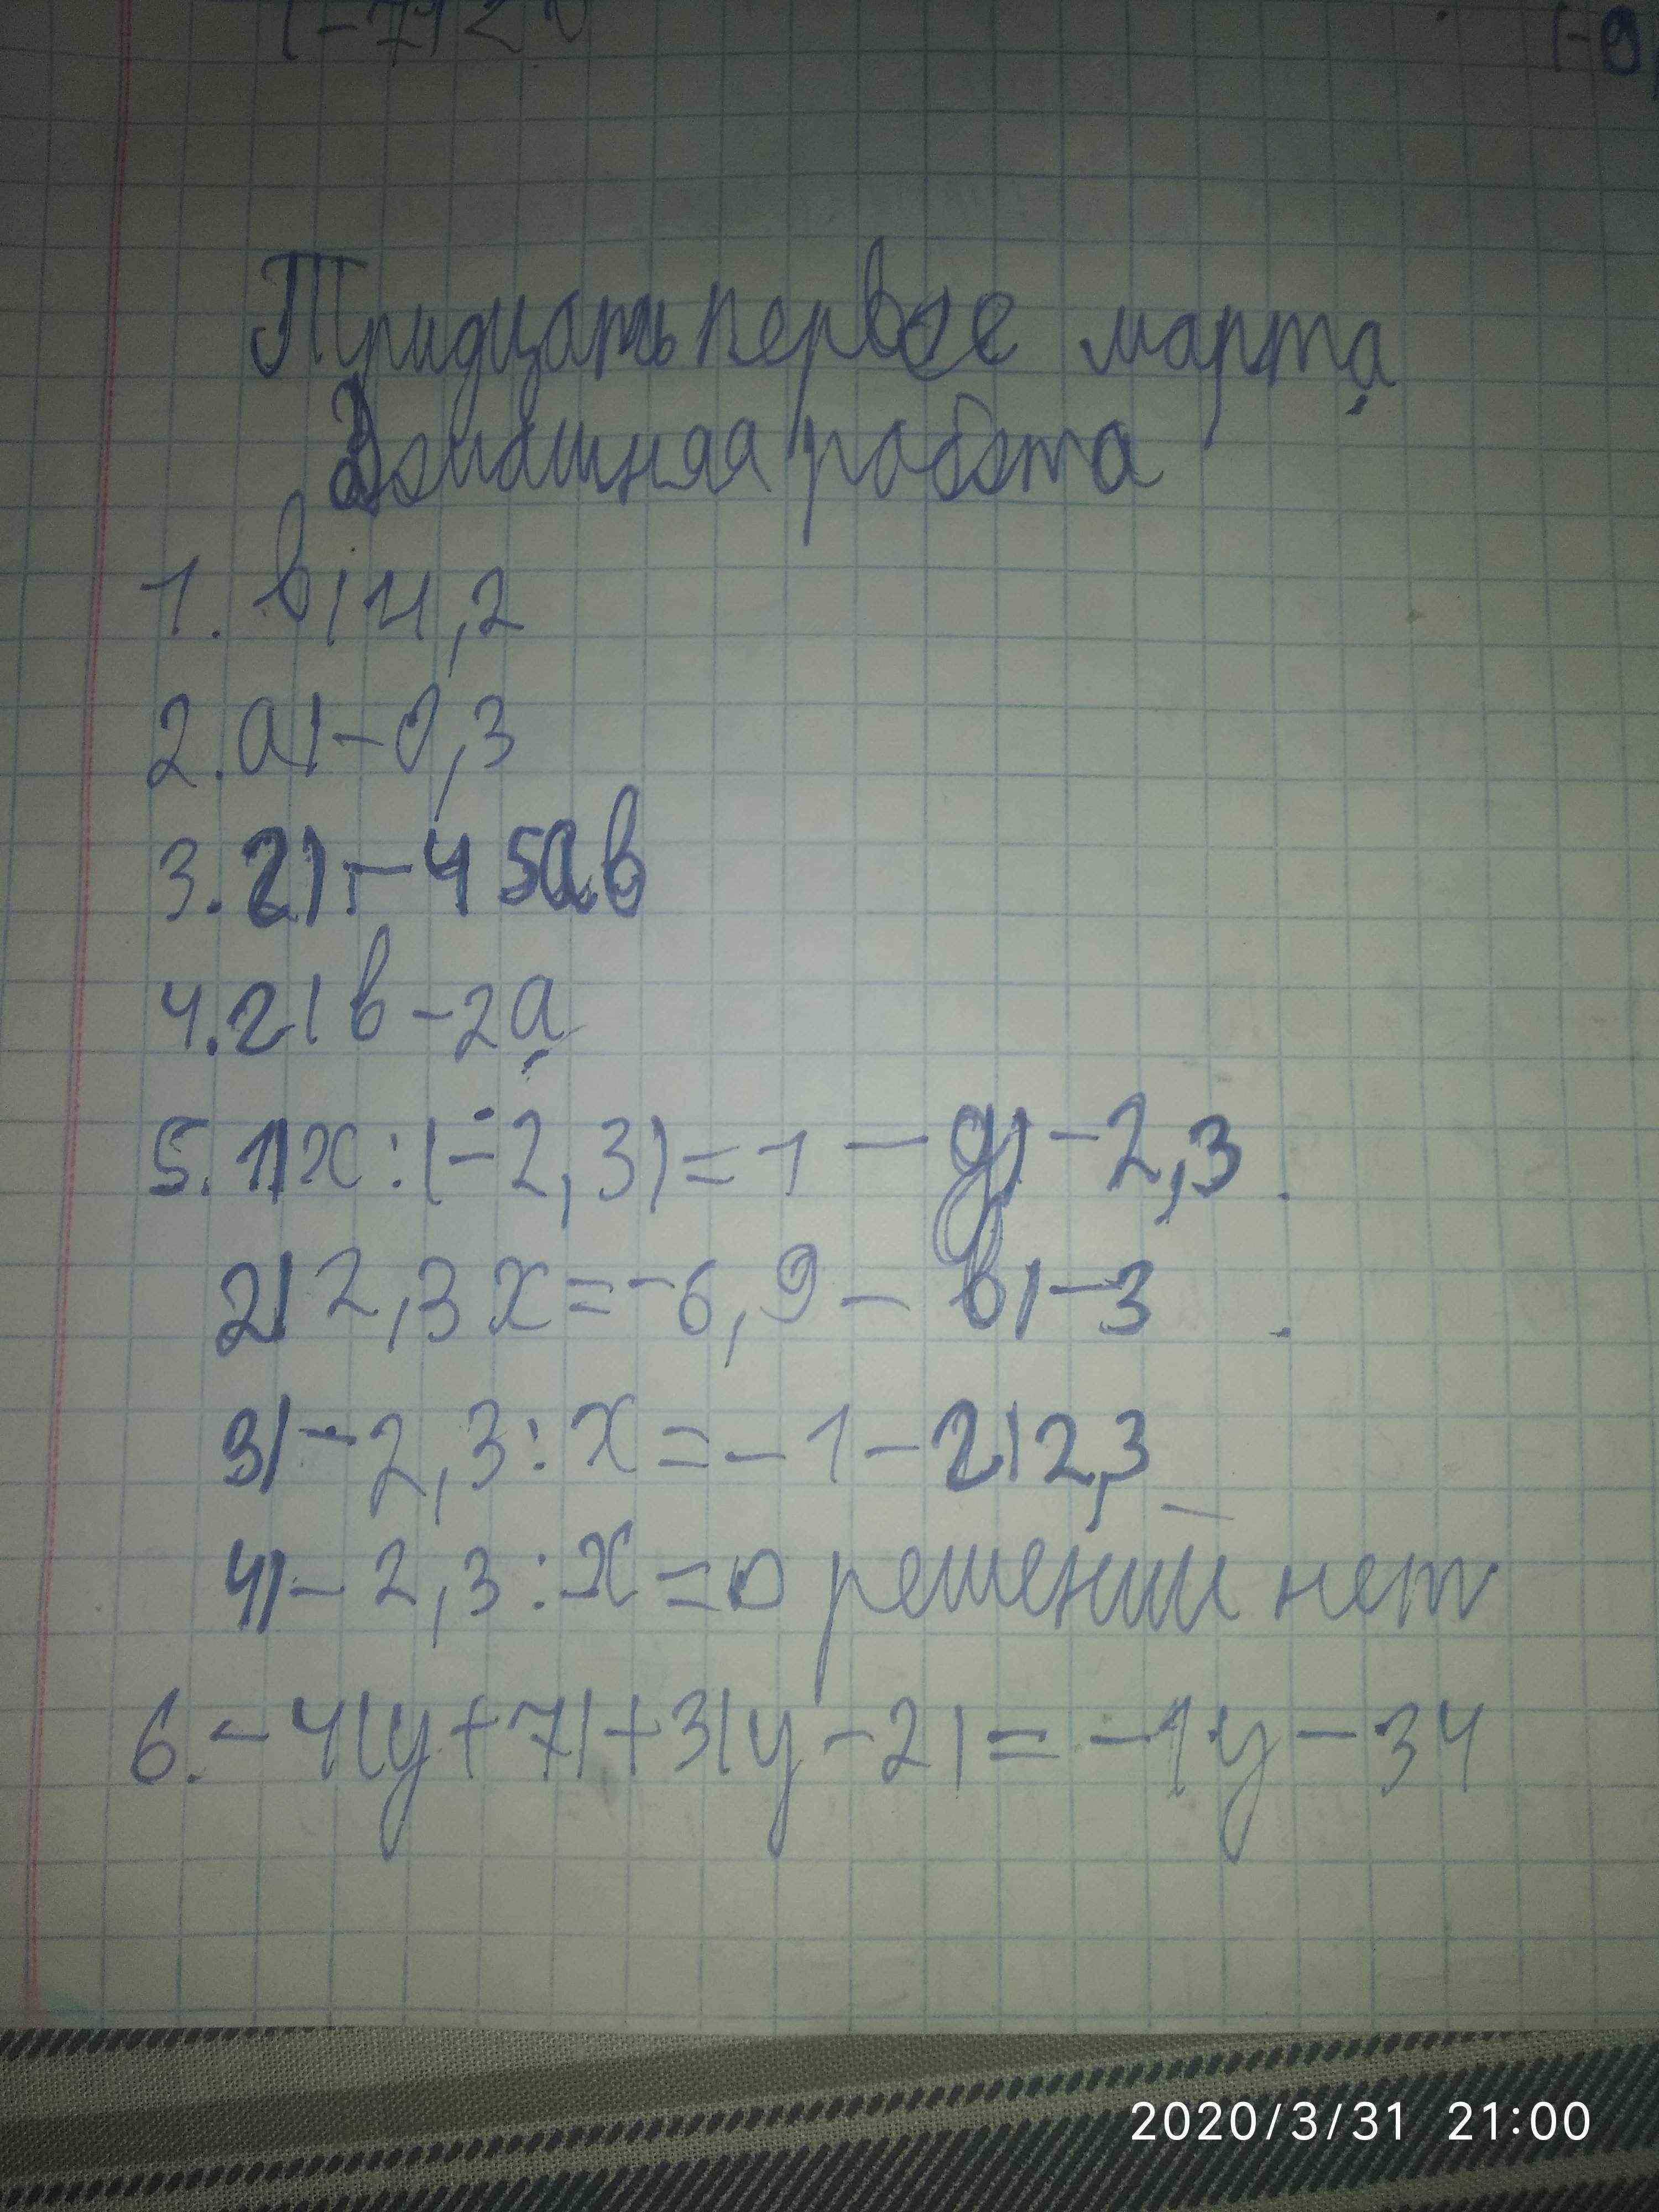 Тридцать первое марта
Домашняя работа
1. в) 4,2
2. а) -0,3
3. г) -45ав
4. г) в-2а
5. 1) х:(-2,3)=1 — д) -2,3
2) 2,3х=-6,9 — в) -3
3) -2,3:х=-1 - г) 2,3
4) -2,3:х=0 решений нет
6. -4(у+7)+3(у-2)=-1у-34
2020/3/31 21:00